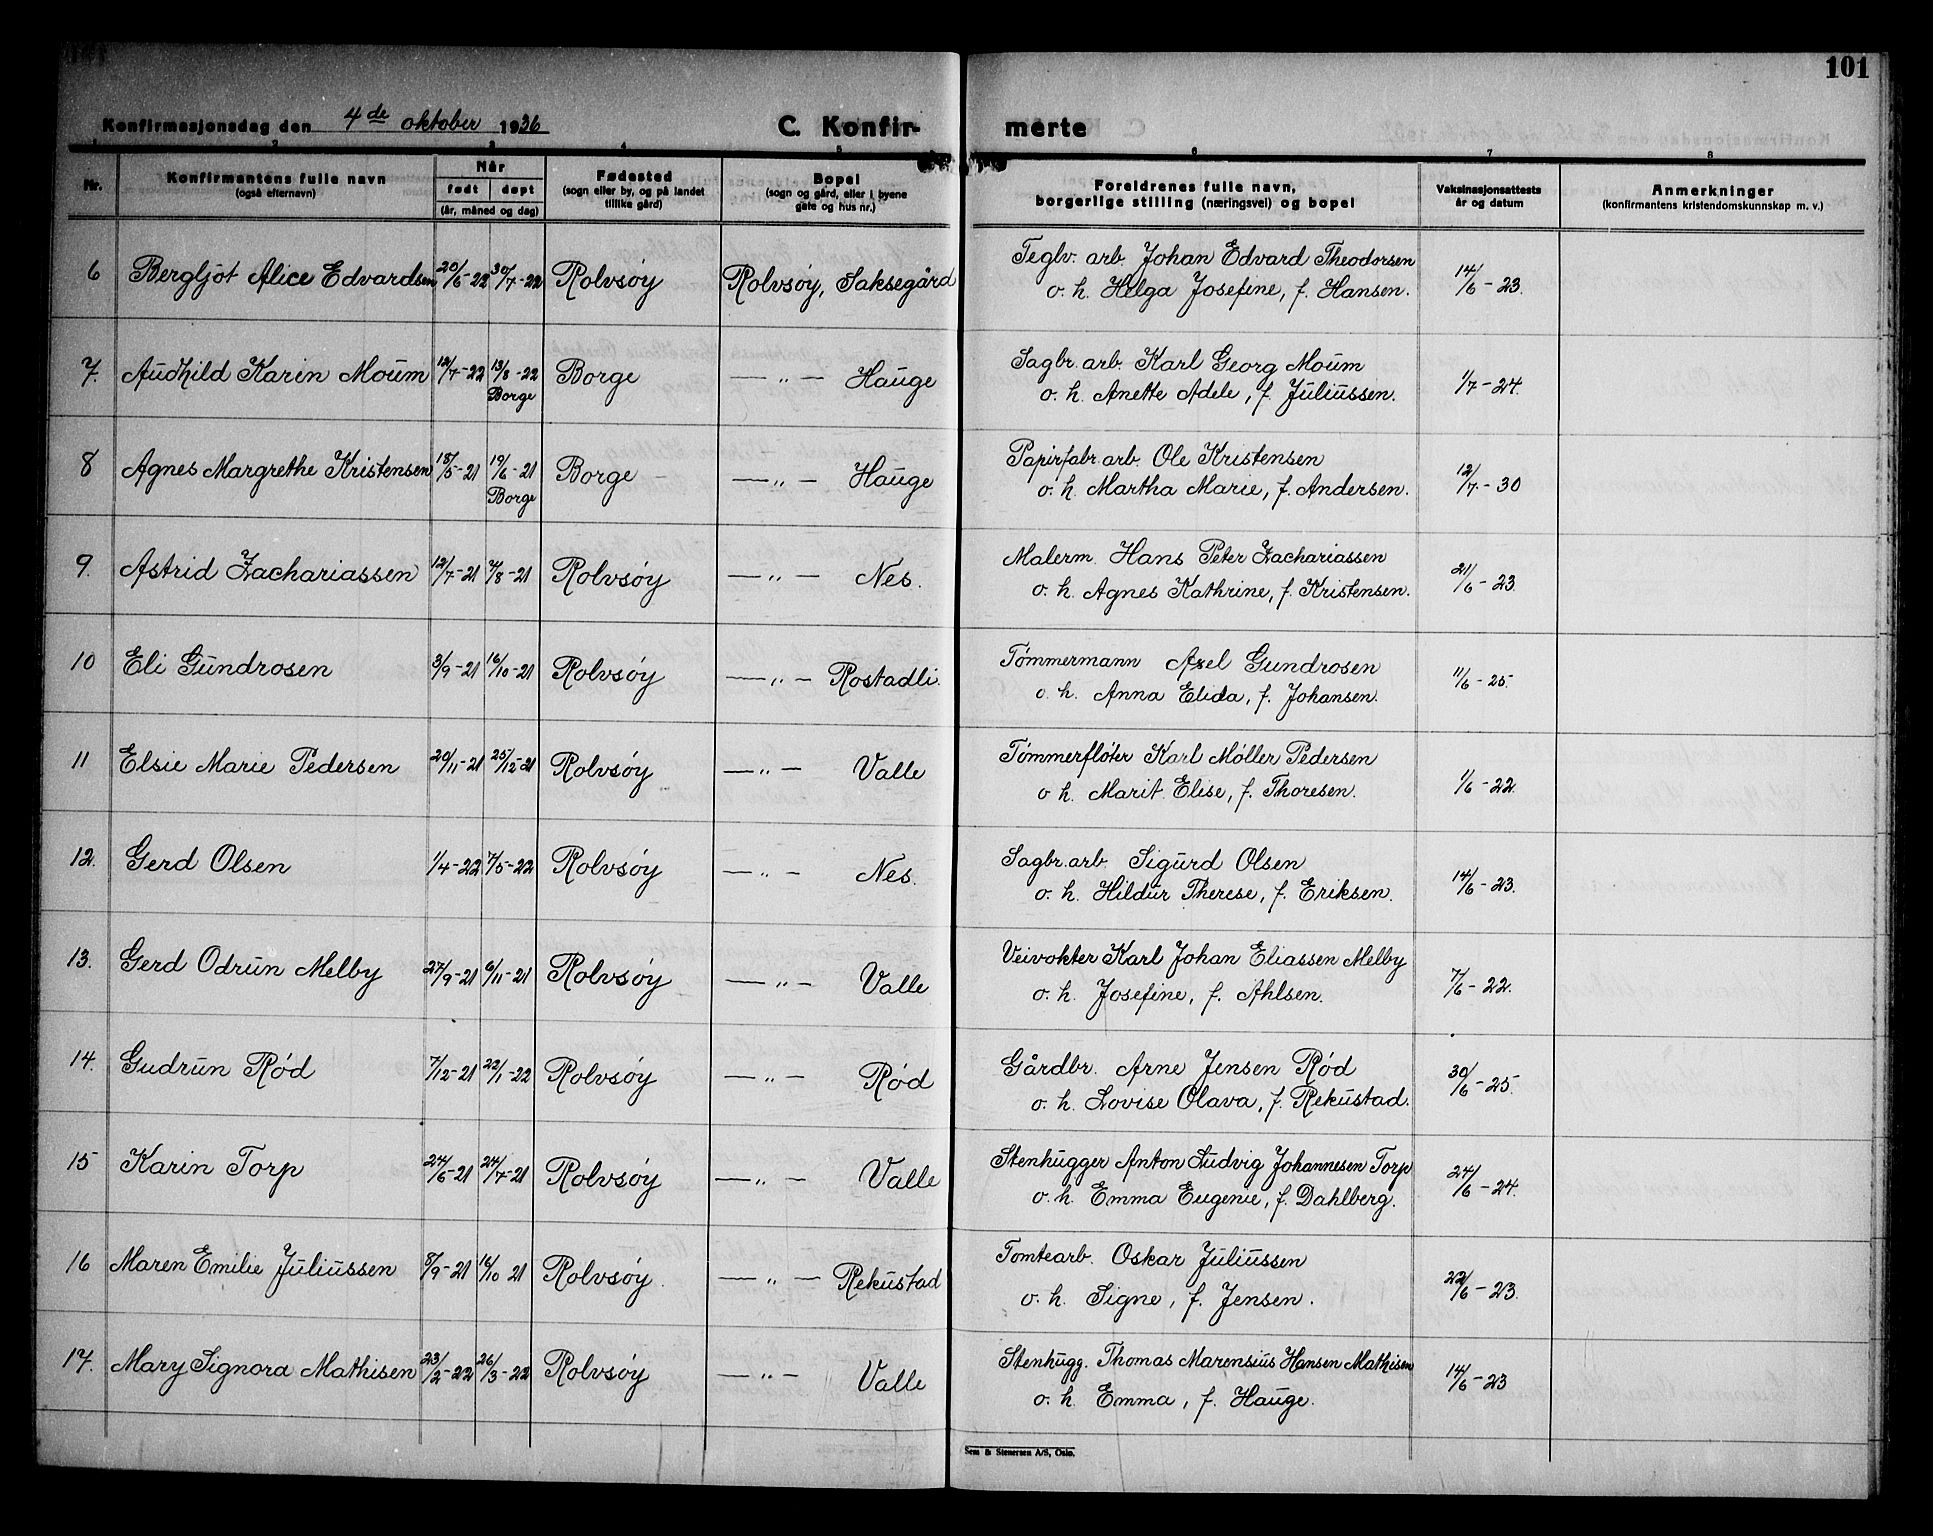 101
Konfirmasjonsdag den 4de oktober 1936 C. Konfir- merte
1 2 3 4 5 6 7 8
Nr. Konfirmantens fulle navn (også efternavn) Når født døpt (år, måned og dag) Fødested (sogn eller by, og på landet tillike gård) Bopel (sogn og gård, eller i byene gate og hus nr.) Foreldrenes fulle navn, borgerlige stilling (næringsvei) og bopel Vaksinasjonsattests år og datum Anmerkninger (konfirmantens kristendomskunnskap m. v.)
6 Bergljot Alice Edvardsen 20/6-22 30/7-22 Rolvsøy Rolvsøy, Saksegård Teglv. arb. Johan Edvard Theodorsen 14/6-23.
o. h. Helga Josefine, f. Hansen.
7. Audhild Karin Moum 12/7-22 13/8-22 Borge Borge — „ — Hauge Sagbr. arb. Karl Georg Moum 1/7-24.
o. h. Anette Adele, f. Juliussen.
8 Agnes Margrethe Kristensen 18/5-21 19/6-21 Borge Borge — „ — Hauge Papirfabr. arb. Ole Kristensen 12/7-30
o. h. Martha Marie, f. Andersen.
9. Astrid Zachariassen 12/7-21 7/8-21 Rolvsøy — „ — Nes. Malerm. Hans Peter Zachariassen 21/6-23.
o. h. Agnes Kathrine, f. Kristensen.
10 Eli Gundrosen 3/9-21 16/10-21 Rolvsøy — „ — Rostadli. Tømmermann Axel Gundrosen 11/6-25.
o. h. Anna Elida, f. Johansen.
11 Elsie Marie Pedersen 20/11-21 25/12-21 Rolvsøy — „ — Valle Tømmerfløter Karl Møller Pedersen 1/6-22.
o h. Marit Elise, f. Thoresen.
12. Gerd Olsen 1/4-22 7/5-22 Rolvsøy — „ — Nes. Sagbr. arb. Sigurd Olsen 14/6-23.
o. h. Hildur Therese, f. Eriksen.
13. Gerd Odrun Melby 27/9-21 6/11-21 Rolvsøy — „ — Valle Veivokter Karl Johan Eliassen Melby 7/6-22.
o. h. Josefine, f. Ahlsen.
14. Gudrun Rød 7/12-21 22/1-22 Rolvsøy — „ — Rød Gårdbr. Arne Jensen Rød 30/6-25.
o. h. Lovise Olava, f. Rekustad.
15 Karin Torp 24/6-21 24/7-21 Rolvsøy — „ — Valle Stenhugger Anton Ludvig Johannesen Torp 24/6-24.
o. h. Emma Eugenie, f. Dahlberg.
16 Maren Emilie Juliussen 8/9-21 16/10 21 Rolvsøy. — „ — Rekustad Tomtearb. Oskar Juliussen 22/6-23.
o. h. Signe, f. Jensen.
17. Mary Signora Mathisen 23/2-22 26/3-22 Rolvsøy — „ — Valle Stenhugg. Thomas Marensius Hansen Mathisen 14/6-23
o. h. Emma, f. Hauge.
Sem & Stenersen A/S, Oslo.